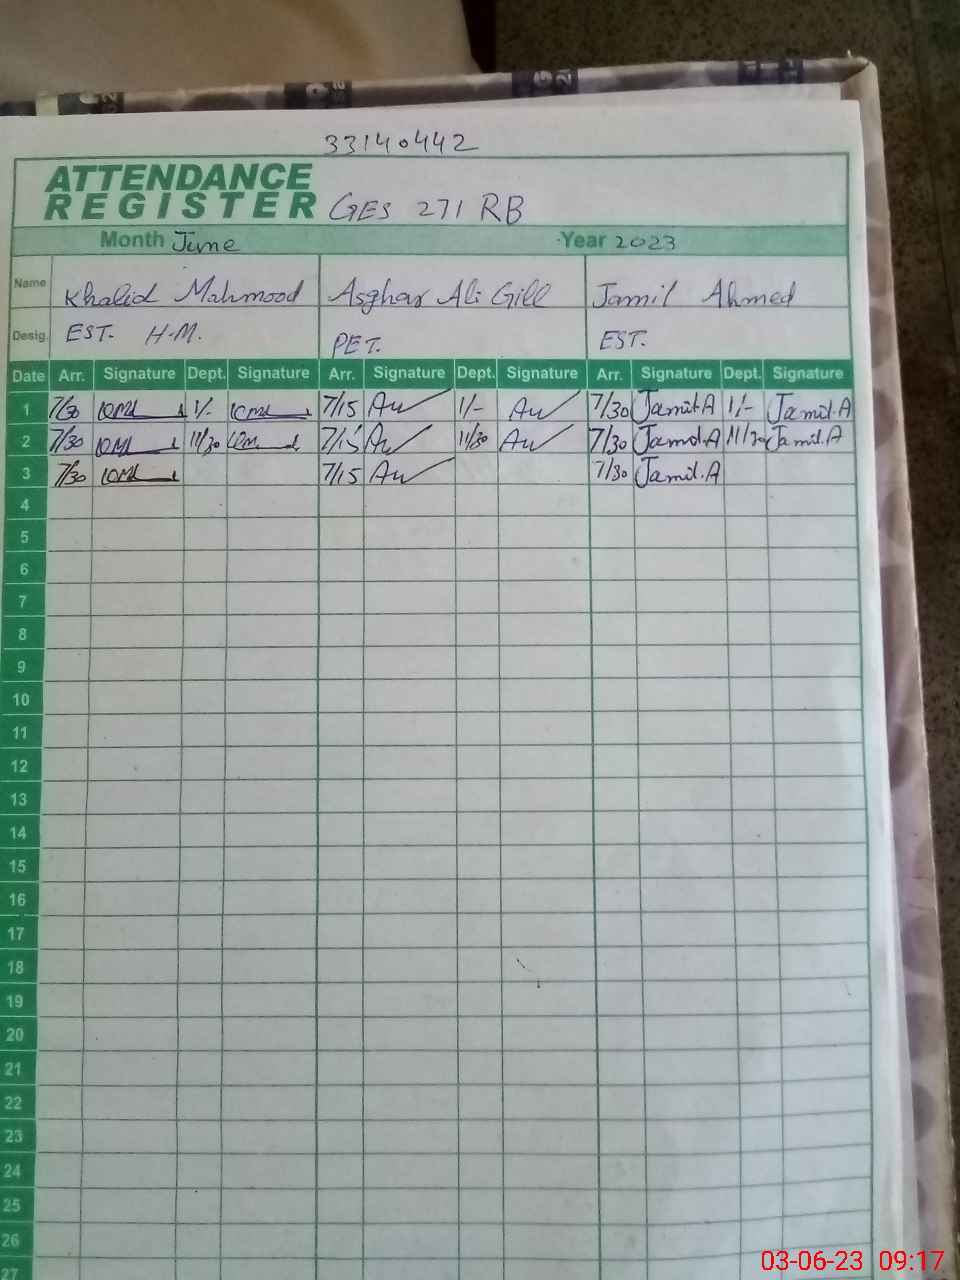 33140442
ATTENDANCE
REGISTER GES 271 RB
Month June Year 2023
Name Khalid Mahmood Asghar Ali Gill Jamil Ahmed
Desig. EST. H.M. PET. EST.
Date Arr. Signature Dept. Signature Arr. Signature Dept. Signature Arr. Signature Dept. Signature
1 7/30 1/- 7/15 1/- 7/30 Jamil.A 1/- Jamil.A
2 7/30 11/30 7/15 11/30 7/30 Jamil.A 11/30 Jamil.A
3 7/30 7/15 7/30 Jamil.A
4
5
6
7
8
9
10
11
12
13
14
15
16
17
18
19
20
21
22
23
24
25
26
27
03-06-23 09:17